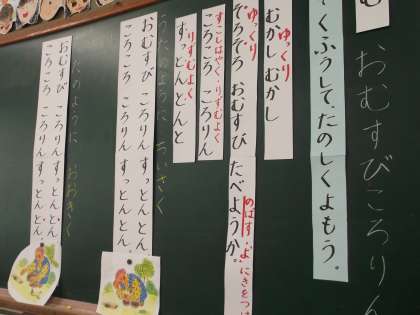 む
おむすびころりん
くふうして、たのしくよもう。
ゆっくり
むかし むかし
ゆっくり
ぞろぞろ おむすび たべようか。
のばす
すこしはやく りずむよく
ころころ ころりん
りずむよく
すっとんとんと
うたのように ちいさく
おむすび ころりん すっとんとん。
ころころ ころりん すっとんとん。
たのように おおきく
おむすび ころりん すっとんとん。
ころころ ころりん すっとんとん。